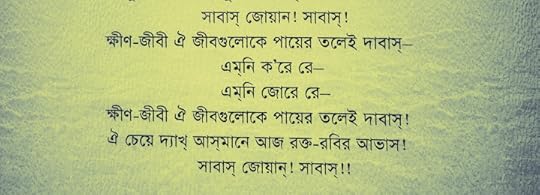 সাবাস্ জোয়ান! সাবাস্!
ক্ষীণ-জীবী ঐ জীবগুলোকে পায়ের তলেই দাবাস্—
এম্‌নি ক'রে রে—
এম্‌নি জোরে রে—
ক্ষীণ-জীবী ঐ জীবগুলোকে পায়ের তলেই দাবাস্!
ঐ চেয়ে দ্যাখ্ আস্‌মানে আজ রক্ত-রবির আভাস!
সাবাস্ জোয়ান্! সাবাস্!!